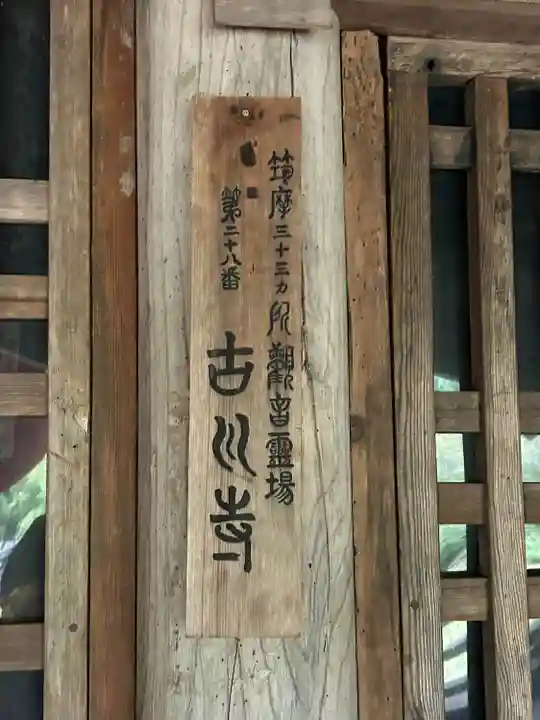 筑摩三十三カ所觀音靈場
第二十八番
古川寺